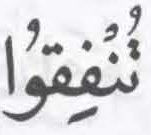 تُنْفِقُوا